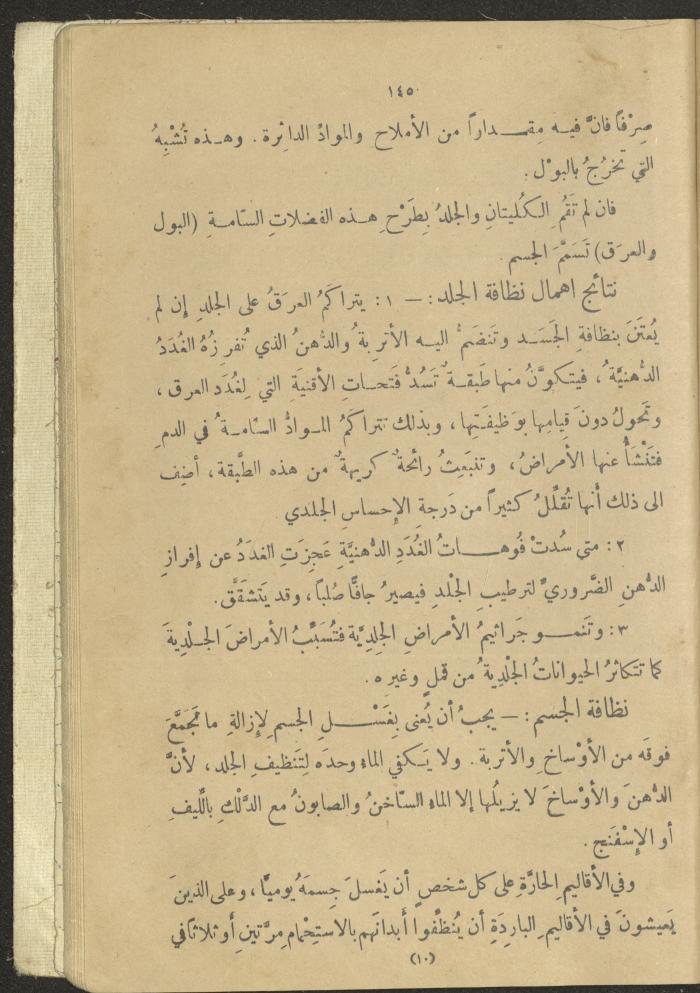 ١٤٥
صِرْفًا فانَّ فيه مِقدارًا من الأملاح والموادِّ الدائرة . وهذه تُشْبِهُ
التي تخرُجُ بالبوْل .
فان لم تَقُمِ الكُليتانِ والجلدُ بِطَرْحِ هذه الفضلاتِ السّامةِ (البول
والعرَق) تَسَمَّمَ الجسم .
نتائج اهمال نظافة الجلد : — ١ : يتراكَمُ العرَقُ على الجلدِ إن لم
يُعتَنَ بنظافةِ الجَسَدِ وتَنضَمُّ اليه الأتربةُ والدُّهنُ الذي تُفرِزُهُ الغُدَدُ
الدُّهنيَّةُ ، فيتكوَّنُ منها طَبقةٌ تَسُدُّ فَتَحاتِ الأقنيَةِ التي لِغُدَد العرق ،
وتَحولُ دونَ قيامِها بوَظيفَتِها ، وبذلك تتراكَمُ الموادُّ السّامةُ في الدمِ
فتَنْشَأُ عنها الأمراضُ ، وتنبَعِثُ رائحةٌ كريهةٌ من هذه الطَّبقة ، أضِف
الى ذلك أنها تُقلِّلُ كثيرًا من دَرجةِ الإحساسِ الجلدي
٢ : متى سُدتْ فُوهاتُ الغُدَدِ الدُّهنيَّةِ عَجِزَتِ الغدَدُ عن إفرازِ
الدُّهنِ الضَّروريِّ لترطيبِ الجْلدِ فيصيرُ جافًّا صُلبًا ، وقد يَتشقَّق .
٣ : وتَنمو جَراثيمُ الأمراضِ الجلِديَّة فتُسَبِّبُ الأمراضَ الجلْديةَ
كما تتكاثرُ الحيواناتُ الجلْديةُ من قملٍ وغيره .
نظافة الجسم : — يجبُ أن يُعنى بِغَسْلِ الجسمِ لإزالةِ ما تَجَمَّعَ
فوقَه من الأوْساخِ والأتربة . ولا يَكفي الماء وحدَه لِتَنظيفِ الجلد ، لأنَّ
الدُّهنَ والأوْساخَ لا يزيلُها إلا الماء السّاخنُ والصابونُ مع الدَّلْكِ باللّيفِ
أو الإسْفَنج .
وفي الأقاليمِ الحارَّةِ على كل شخصٍ أن يَغسلَ جِسمَهُ يوميًّا ، وعلى الذينَ
يَعيشونَ في الأقاليمِ الباردَةِ أن يُنظِّفُوا أبدانَهم بالاستِحْمامِ مرَّتينِ أو ثلاثًا في
(١٠)